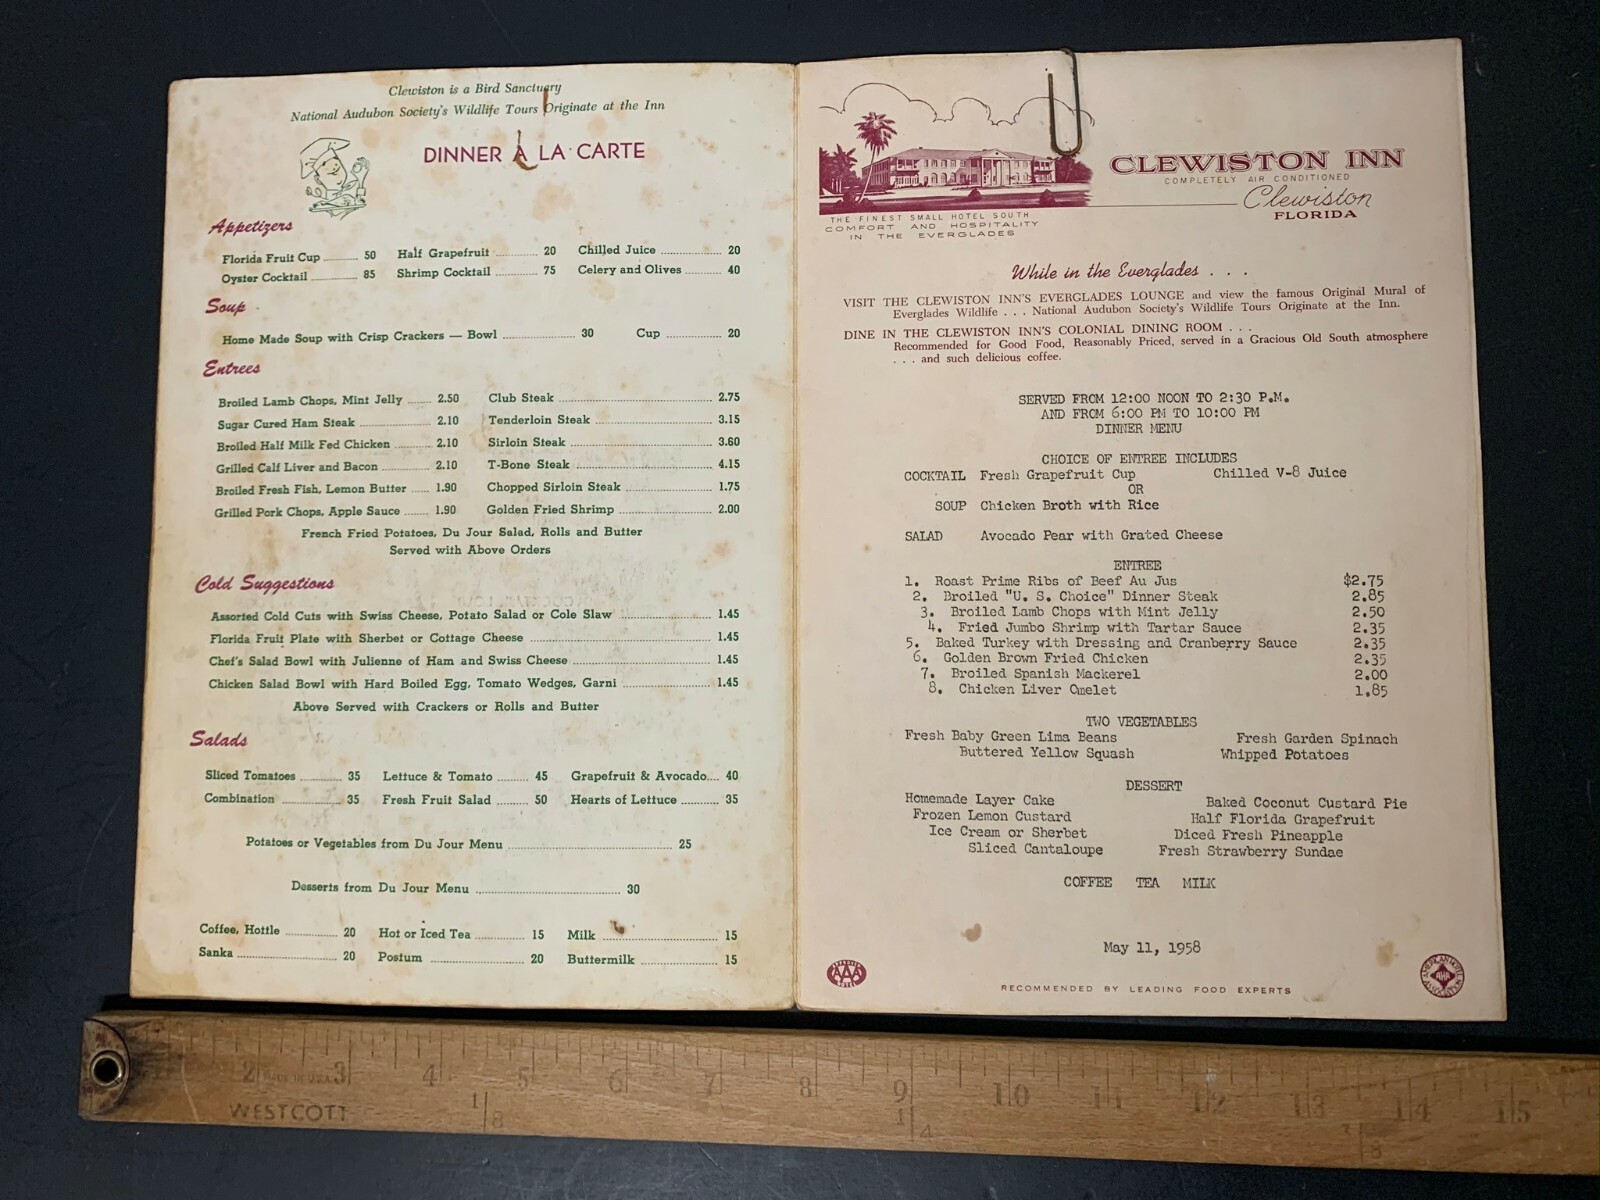 Clewiston is a Bird Sanctuary
National Audubon Society's Wildlife Tours Originate at the Inn
DINNER A LA CARTE
Appetizers
Florida Fruit Cup 50 Half Grapefruit 20 Chilled Juice 20
Oyster Cocktail 85 Shrimp Cocktail 75 Celery and Olives 40
Soup
Home Made Soup with Crisp Crackers — Bowl 30 Cup 20
Entrees
Broiled Lamb Chops, Mint Jelly 2.50 Club Steak 2.75
Sugar Cured Ham Steak 2.10 Tenderloin Steak 3.15
Broiled Half Milk Fed Chicken 2.10 Sirloin Steak 3.60
Grilled Calf Liver and Bacon 2.10 T-Bone Steak 4.15
Broiled Fresh Fish, Lemon Butter 1.90 Chopped Sirloin Steak 1.75
Grilled Pork Chops, Apple Sauce 1.90 Golden Fried Shrimp 2.00
French Fried Potatoes, Du Jour Salad, Rolls and Butter
Served with Above Orders
Cold Suggestions
Assorted Cold Cuts with Swiss Cheese, Potato Salad or Cole Slaw 1.45
Florida Fruit Plate with Sherbet or Cottage Cheese 1.45
Chef's Salad Bowl with Julienne of Ham and Swiss Cheese 1.45
Chicken Salad Bowl with Hard Boiled Egg, Tomato Wedges, Garni 1.45
Above Served with Crackers or Rolls and Butter
Salads
Sliced Tomatoes 35 Lettuce & Tomato 45 Grapefruit & Avocado 40
Combination 35 Fresh Fruit Salad 50 Hearts of Lettuce 35
Potatoes or Vegetables from Du Jour Menu 25
Desserts from Du Jour Menu 30
Coffee, Hottle 20 Hot or Iced Tea 15 Milk 15
Sanka 20 Postum 20 Buttermilk 15
CLEWISTON INN
COMPLETELY AIR CONDITIONED
Clewiston
FLORIDA
THE FINEST SMALL HOTEL SOUTH
COMFORT AND HOSPITALITY
IN THE EVERGLADES
While in the Everglades . . .
VISIT THE CLEWISTON INN'S EVERGLADES LOUNGE and view the famous Original Mural of
Everglades Wildlife . . . National Audubon Society's Wildlife Tours Originate at the Inn.
DINE IN THE CLEWISTON INN'S COLONIAL DINING ROOM . . .
Recommended for Good Food, Reasonably Priced, served in a Gracious Old South atmosphere
. . . and such delicious coffee.
SERVED FROM 12:00 NOON TO 2:30 P.M.
AND FROM 6:00 PM TO 10:00 PM
DINNER MENU
CHOICE OF ENTREE INCLUDES
COCKTAIL Fresh Grapefruit Cup Chilled V-8 Juice
OR
SOUP Chicken Broth with Rice
SALAD Avocado Pear with Grated Cheese
ENTREE
1. Roast Prime Ribs of Beef Au Jus $2.75
2. Broiled "U. S. Choice" Dinner Steak 2.85
3. Broiled Lamb Chops with Mint Jelly 2.50
4. Fried Jumbo Shrimp with Tartar Sauce 2.35
5. Baked Turkey with Dressing and Cranberry Sauce 2.35
6. Golden Brown Fried Chicken 2.35
7. Broiled Spanish Mackerel 2.00
8. Chicken Liver Omelet 1.85
TWO VEGETABLES
Fresh Baby Green Lima Beans Fresh Garden Spinach
Buttered Yellow Squash Whipped Potatoes
DESSERT
Homemade Layer Cake Baked Coconut Custard Pie
Frozen Lemon Custard Half Florida Grapefruit
Ice Cream or Sherbet Diced Fresh Pineapple
Sliced Cantaloupe Fresh Strawberry Sundae
COFFEE TEA MILK
May 11, 1958
AAA
HOTEL
RECOMMENDED BY LEADING FOOD EXPERTS
AMERICAN HOTEL ASSOCIATION
AHA
2 3 4 5 6 7 8 9 10 11 12 13 14 15
MADE IN U.S.A.
WESTCOTT
1/8 1/4